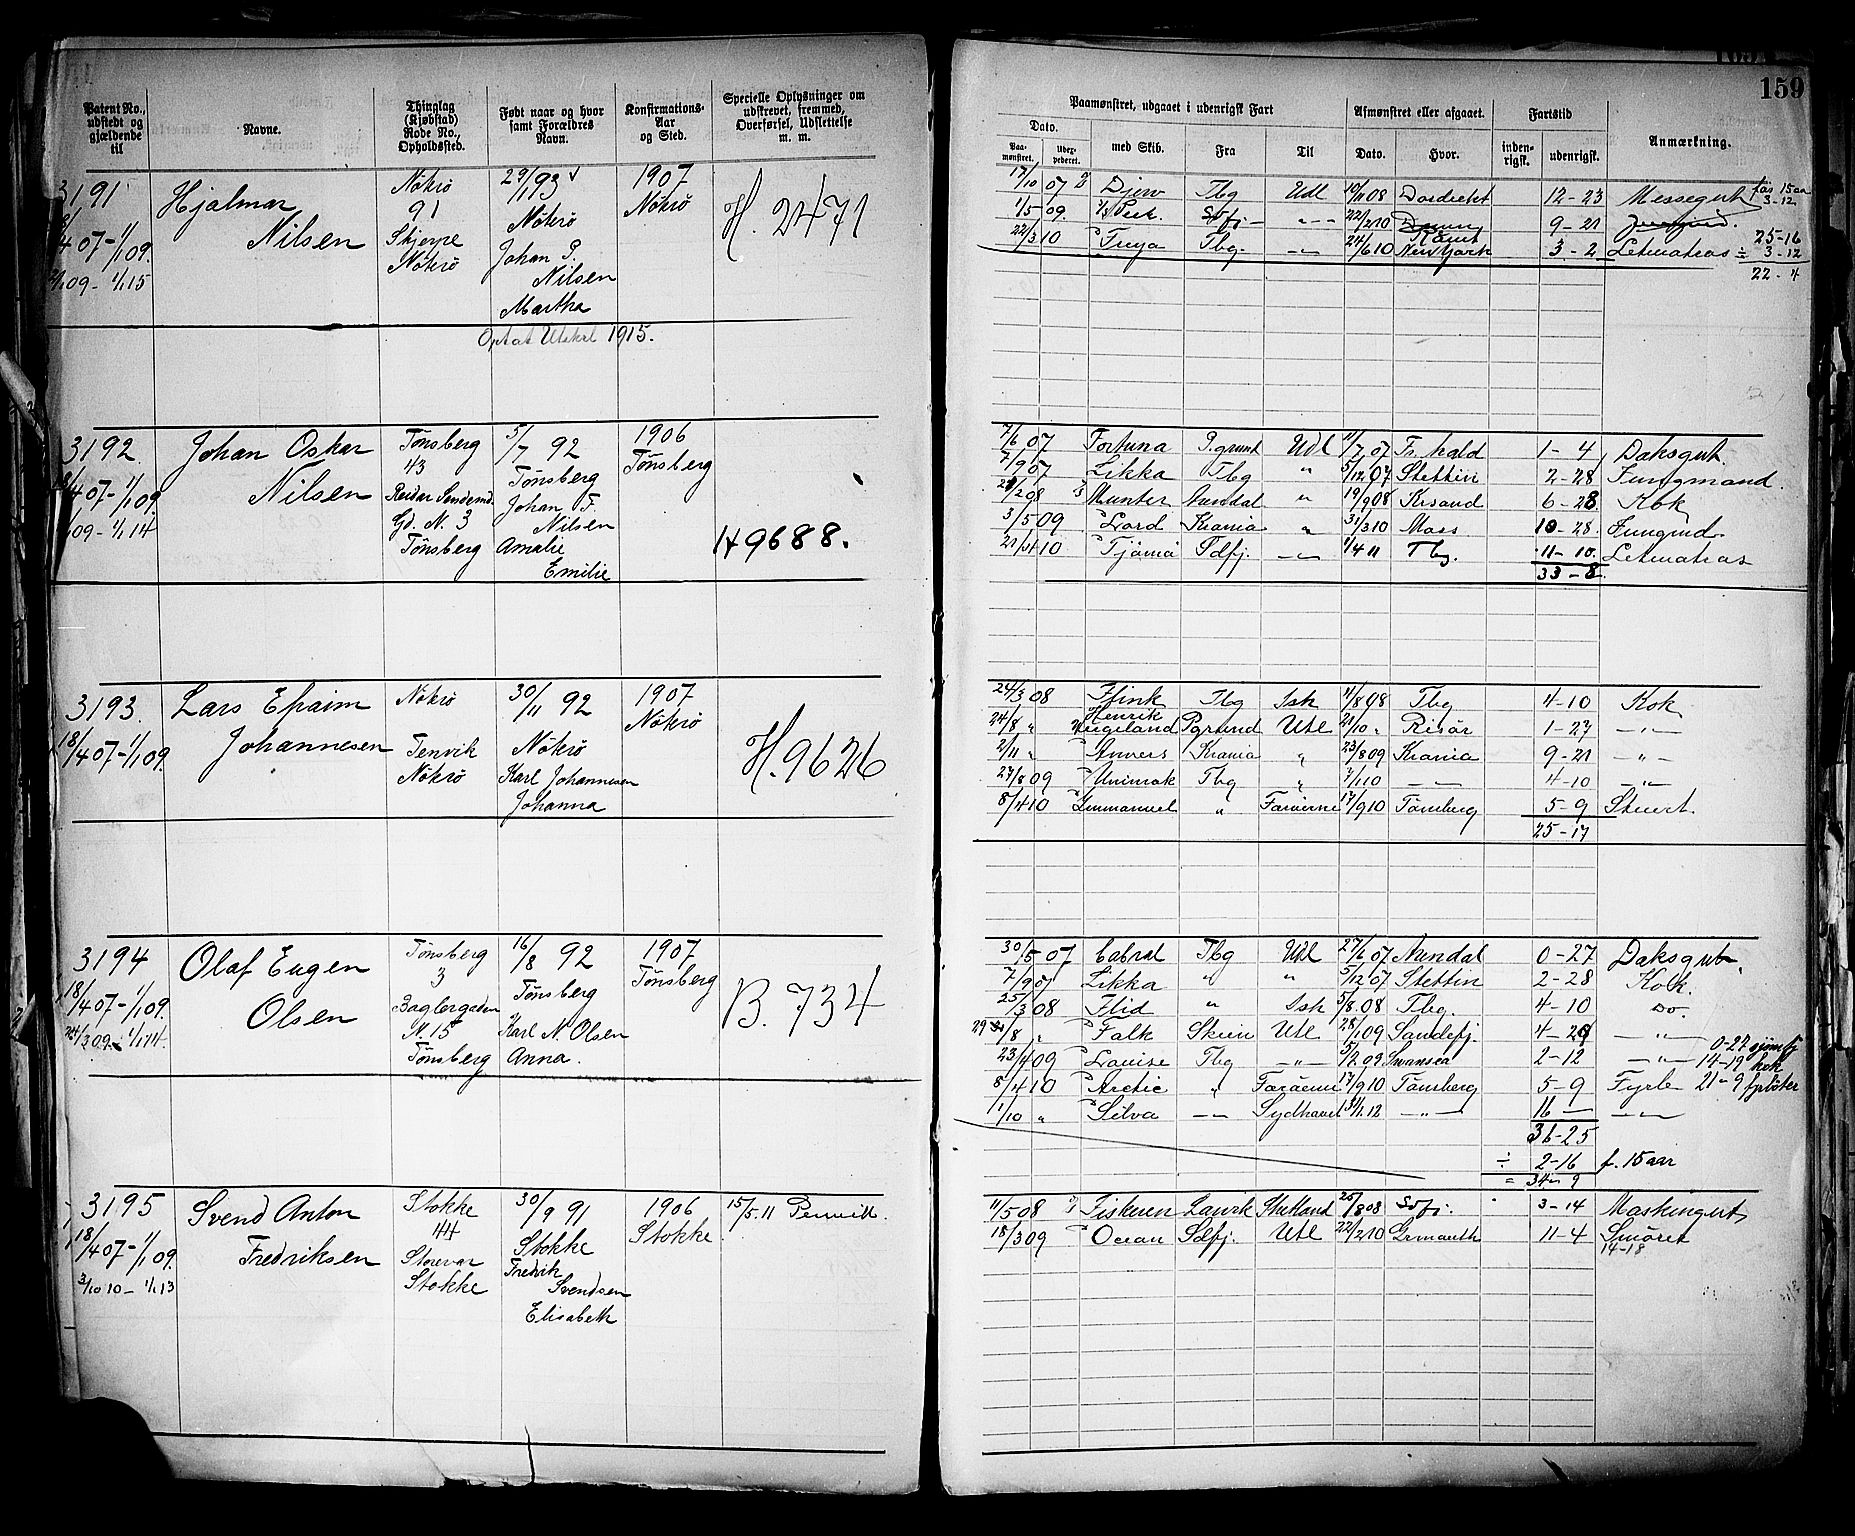 159
Patent No., udstedt og gjældende til
Navne.
Thinglag (Kjøbstad) Rode No., Opholdssted.
Født naar og hvor samt Forældres Navn.
Konfirmations- Aar og Sted.
Specielle Oplysninger om udskrevet, fremmed, Overførsel, Udslettelse m. m.
Paamønstret, udgaaet i udenrigsk Fart
Dato.
Paa- mønstret.
Udex- pederet.
med Skib.
Fra
Til
Afmønstret eller afgaaet.
Dato.
Hvor.
Fartstid
inden- rigsk.
udenrigsk.
Anmærkning.
3191
Hjalmar Nilsen
4 07 - 1/1 09.
09 - 1/1 15
Nøtrø
91
Skjerpe
Nøtrø
29/1 93
Nøtrø
Johan P. Nilsen
Martha
1907
Nøtrø
H. 2471
Optat Utskr 1915.
17/10 07 Djerv Tbg Udl 10/11 08 Dordrecht 12-23 Messegut før 15 aar 3-12
1/5 09. Sdfj. 22/2 10 9-21
22/3 10 Freya Tbg. 24/6 10 New York 3-2 Letmatros
25-16
÷ 3-12
22-4
3192
Johan Oskar Nilsen
4 07 - 1/1 09.
09 - 1/1 14
Tønsberg
43
Gd. N. 3
Tønsberg
5/7 92
Tønsberg
Johan F. Nilsen
Amalie Emilie
1906
Tønsberg
H 9688.
7/6 07 Fortuna P.grund Udl 11/7 07 Fr. hald 1-4 Daksgut
7/9 07 Likka Tbg " 5/12 07 Stettin 2-28 Jungmand.
2 08 Munter Arendal " 19/9 08 Krsand 6-28 Kok
3/5 09 Lord Krania " 31/3 10 Moss 10-28. Jungmd.
21/4 10 Tjømø Sdfj. 1/4 11 Tbg. 11-10. Letmatros
33-8.
3193
Lars Efraim Johannesen
18/4 07 - 1/1 09.
Nøtrø
Tenvik
Nøtrø
30/11 92
Nøtrø
Karl Johannesen
Johanna
1907
Nøtrø
H. 9626
24/3 08 Flink Tbg Ish 11/8 08 Tbg 4-10 Kok
24/8 " Henrik Wergeland Pgrund Utl 21/10 " Risør 1-27 - " -
2/11 " Anvers Krania " 23/8 09 Krania 9-21 - " -
27/8 09 Unimak Tbg " 7/1 10 4-10 - " -
8/4 10 Immanuel " Færøerne 17/9 10 Tønsberg 5-9 Stuert.
25-17
3194
Olaf Eugen Olsen
18/4 07 - 1/1 09.
24/3 09 - 1/1 14.
Tønsberg
3
Baglergaden
N 15
Tønsberg
16/8 92
Tønsberg
Karl N. Olsen
Anna.
1907
Tønsberg
B. 734
30/5 07 Cabral Tbg Udl 27/6 07 Arendal 0-27 Daksgut
7/9 07 Likka " " 5/12 07 Stettin 2-28 Kok.
25/3 08 Flid " Ish 5/8 08 Tbg. 4-10 Do.
29/8 " Falk Skien Utl 28/1 09 Sandefj. 4-29 - " -
23/4 09 Louise Tbg - " - 5/2 09 Swansea 2-12 - " -
0-27
14-19 kok
8/4 10 Arctic " Færøerne 17/9 10 Tønsberg 5-9 Fyrb 21-9 fyrbøter
1/10 " Silva Sydhavet 31/1 12 - " - 16 -
36-25
÷ 2-16 f. 15 aar
= 34-9
3195
Svend Anton Fredriksen
18/4 07 - 1/1 09.
3/10 10 - 1/1 13
Stokke
44
Storevar
Stokke
30/9 91
Stokke
Fredrik Svendsen
Elisabeth
1906
Stokke
15/5 11
11/5 08 Fiskeren Larvik Shetland 25/8 08 Sdfj. 3-14 Maskingut
18/3 09 Ocean Sdfj. Utl 22/2 10 11-4 Smører
14-18